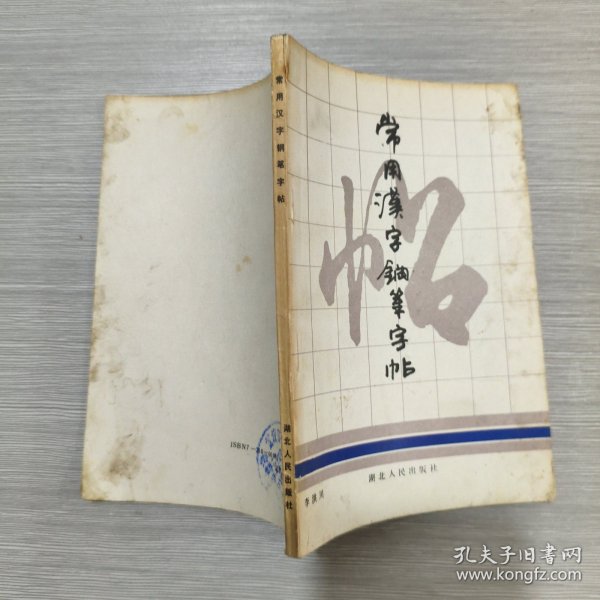 常用漢字鋼筆字帖
帖
湖北人民出版社
常用汉字钢笔字帖
湖北人民出版社
ISBN7-
孔夫子旧书网
www.kongfz.com